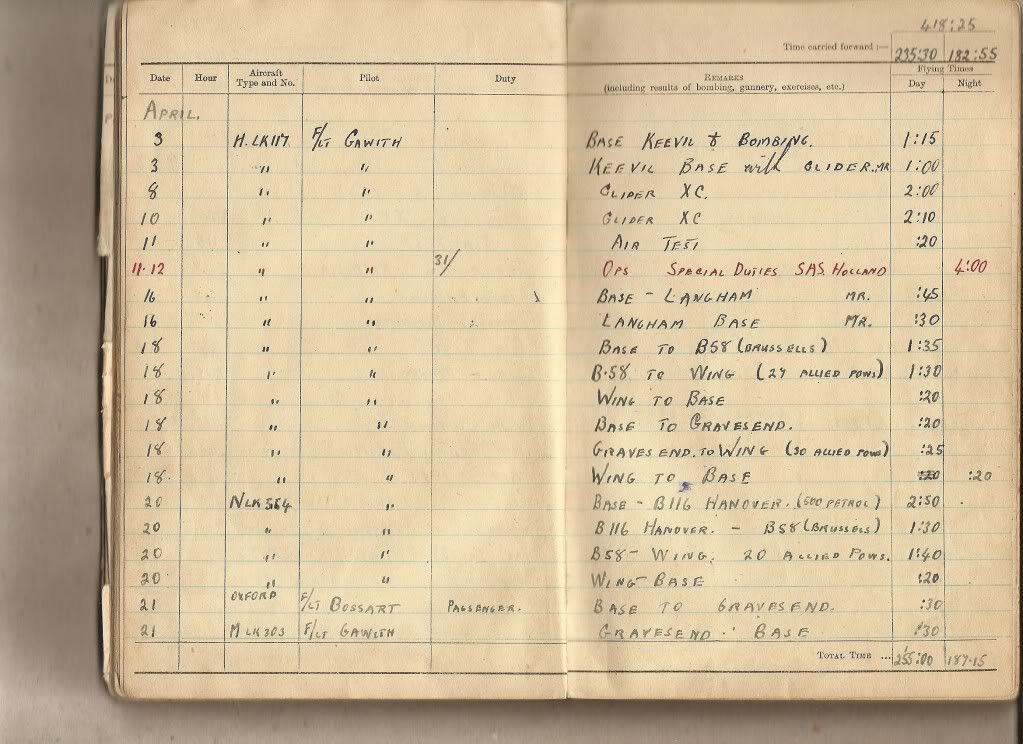 418:25
Time carried forward :—
235:30 182:55
Flying Times
Date Hour Aircraft Type and No. Pilot Duty REMARKS (including results of bombing, gunnery, exercises, etc.) Day Night
APRIL.
3 H. LK117 F/LT GAWITH BASE KEEVIL & BOMBING. 1:15
3 " " KEEVIL BASE with GLIDER. MR 1:00
8 " " GLIDER XC. 2:00
10 " " GLIDER XC 2:10
11 " " AIR TEST :20
11-12 " " 31/ OPS SPECIAL DUTIES SAS. HOLLAND 4:00
16 " " BASE - LANGHAM MR. :45
16 " " LANGHAM BASE MR. :30
18 " " BASE TO B58 (BRUSSELLS) 1:35
18 " " B.58 TO WING (24 ALLIED POWS) 1:30
18 " " WING TO BASE :20
18 " " BASE TO GRAVESEND. :20
18 " " GRAVESEND. TO WING (30 ALLIED POWS) :25
18. " " WING TO BASE :20 :20
20 N LK554 " BASE - B116 HANOVER. (500 PETROL) 2:50
20 " " B116 HANOVER. - B58 (BRUSSELS) 1:30
20 " " B58 - WING. 20 ALLIED POWS. 1:40
20 " " WING - BASE :20
21 OXFORD F/LT BOSSART PASSENGER. BASE TO GRAVESEND. :30
21 M LK303 F/LT GAWITH GRAVESEND BASE :30
TOTAL TIME ... 255:00 187.15